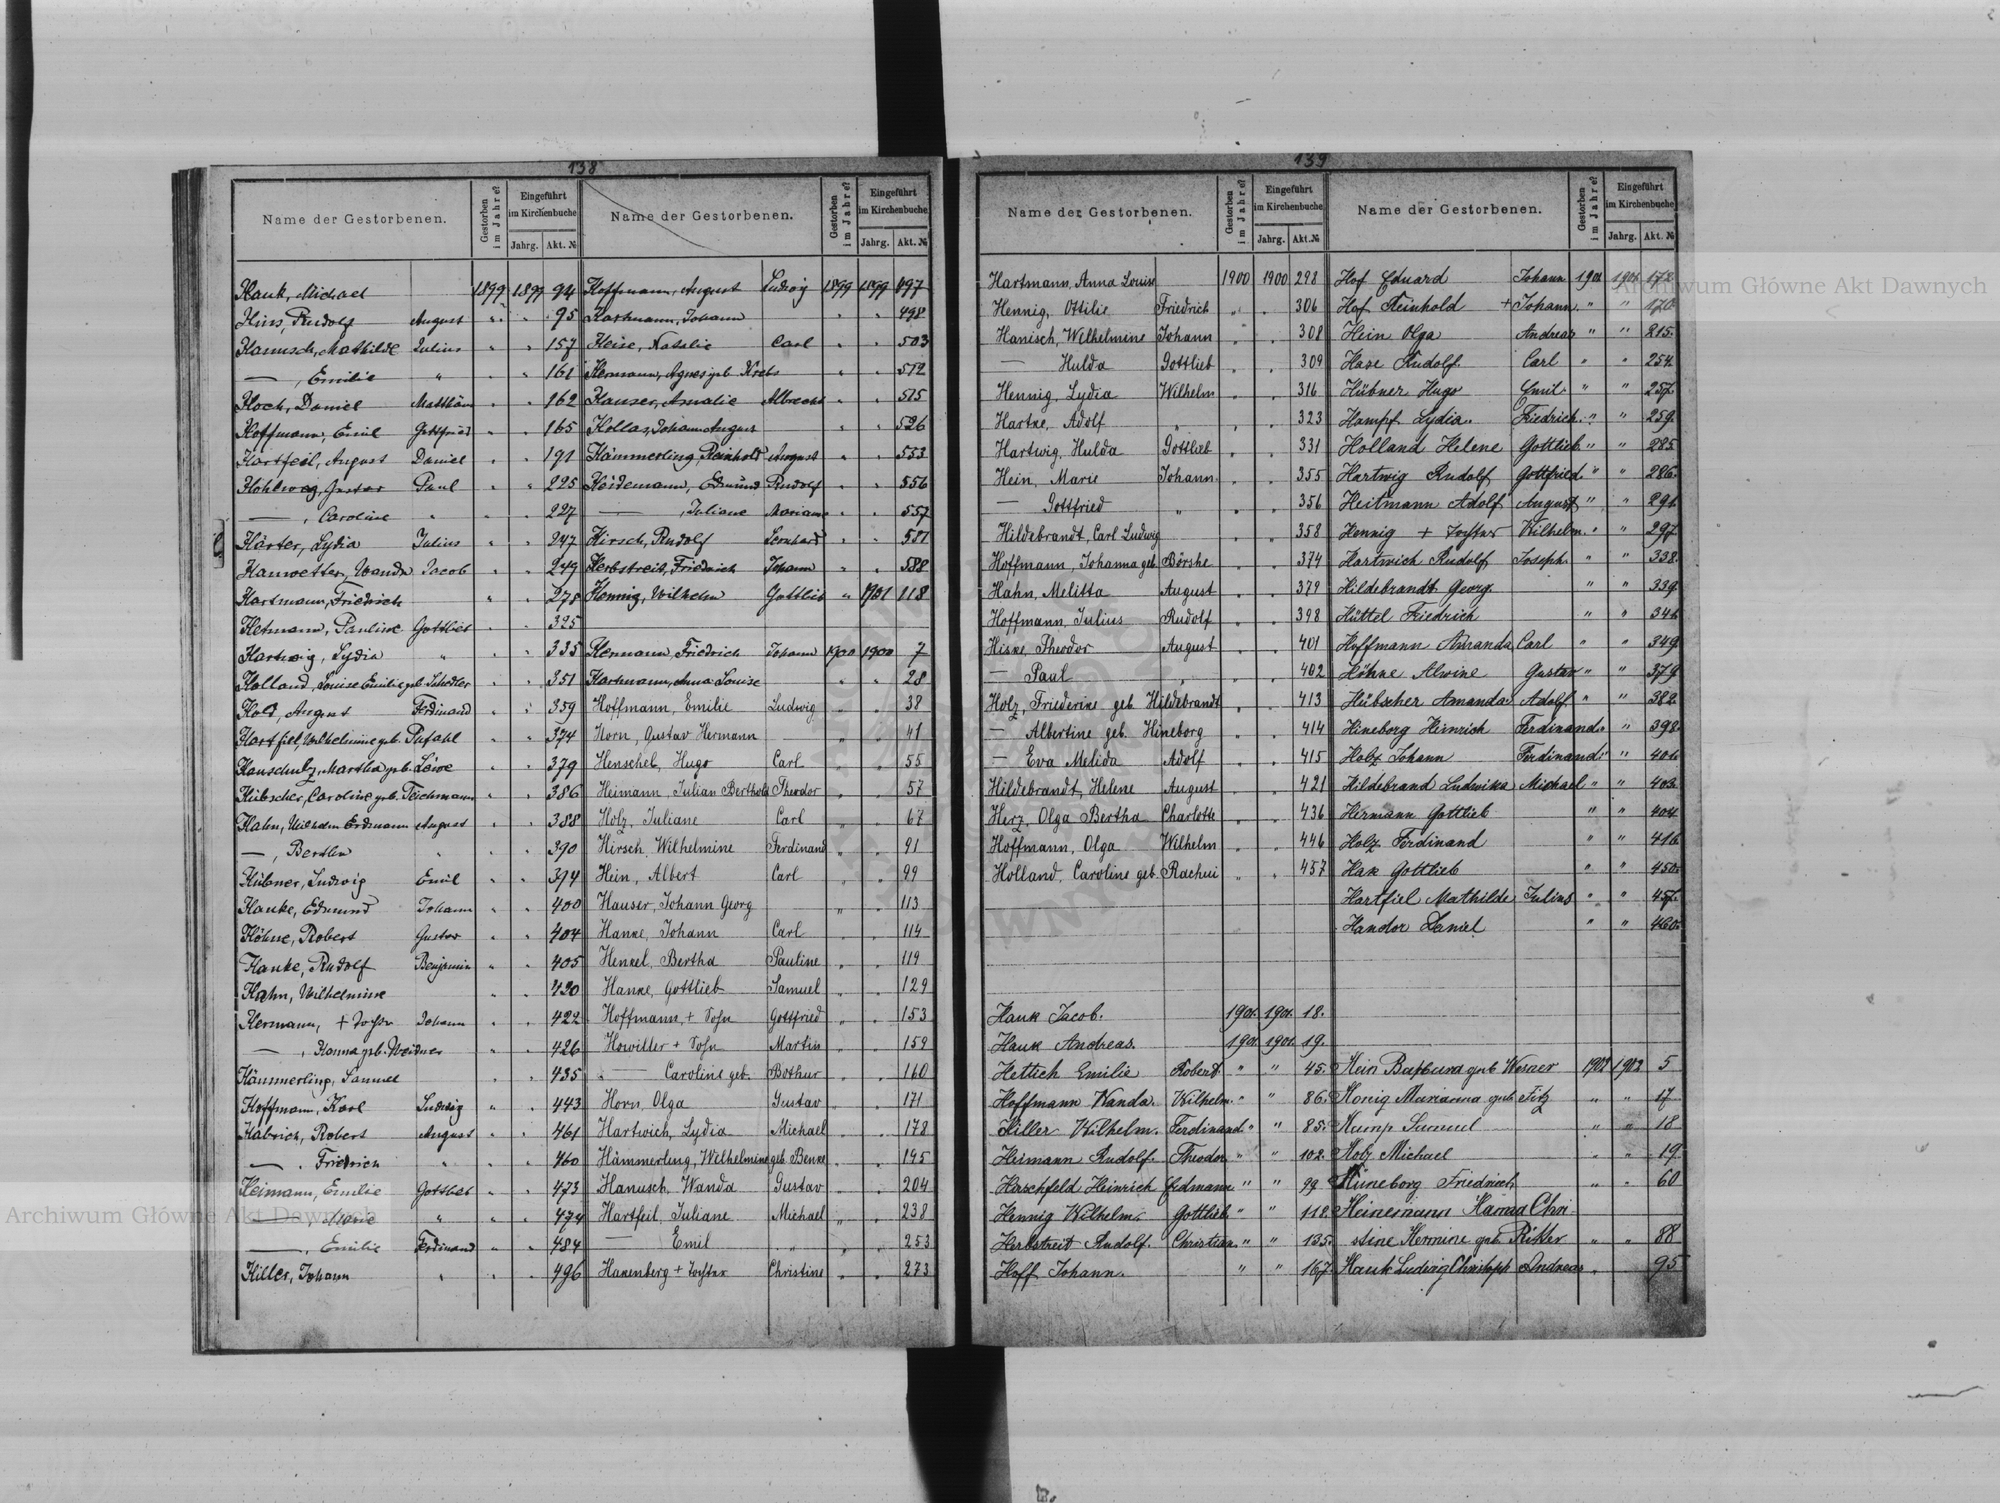 138
Name der Gestorbenen.
Gestorben im Jahre?
Eingeführt im Kirchenbuche
Jahrg.
Akt. №
Name der Gestorbenen.
Gestorben im Jahre?
Eingeführt im Kirchenbuche
Jahrg.
Akt. №
Hauk, Michael 1899 1899 94
Hins, Rudolf August " " 95
Hanusch, Mathilde Julius " " 157
— , Emilie " " " 161
Hoch, Daniel Matthäus " " 162
Hoffmann, Emil Gottfried " " 165
Hartfeil, August Daniel " " 191
Hohlweg, Gustav Paul " " 225
— , Caroline " " " 227
Härter, Lydia Julius " " 247
Hauwetter, Wanda Jacob " " 249
Hartmann, Friedrich " " 278
Hetmann, Pauline Gottlieb " " 325
Hartwig, Lydia " " " 335
Holland, Louise Emilie geb. Schedler " " 351
August Ferdinand " " 359
Hartfiel, Wilhelmine geb. Pufahl " " 374
Hauschulz, Martha geb. Löwe " " 379
Hübscher, Caroline geb. Teichmann " " 386
Hahn, Wilhelm Erdmann August " " 388
— , Bertha " " " 390
Hübner, Ludwig Emil " " 394
Hanke, Edmund Johann " " 400
Höhne, Robert Gustav " " 404
Hanke, Rudolf Benjamin " " 405
Hahn, Wilhelmine " " 420
Hermann, + Tochter Johann " " 422
— , Hanna geb. Weidner " " 426
Hämmerling, Samuel " " 435
Hoffmann, Karl Ludwig " " 443
Habrich, Robert August " " 461
— , Friedrich " " " 460
Heimann, Emilie Gottlieb " " 473
— , Marie " " " 474
— , Emilie Ferdinand " " 484
Hiller, Johann " " " 496
Hoffmann, August Ludwig 1899 1899 497
Hartmann, Johann " " 498
Heise, Natalie Carl " " 503
Hermann, Agnes geb. Krebs " " 512
Hauser, Amalie Albrecht " " 515
Hollas, Johann August " " 526
Hämmerling, Reinhold August " " 553
Heidemann, Edmund Rudolf " " 556
— , Juliane Mariane " " 557
Hirsch, Rudolf Leonhard " " 581
Herbstreit, Friedrich Johann " " 588
Hennig, Wilhelm Gottlieb " 1901 118
Hermann, Friedrich Johann 1900 1900 7
Hartmann, Anna Louise " " 28
Hoffmann, Emilie Ludwig " " 38
Horn, Gustav Hermann " " 41
Henschel, Hugo Carl " " 55
Heimann, Julian Berthold Theodor " " 57
Holz, Juliane Carl " " 67
Hirsch, Wilhelmine Ferdinand " " 91
Hein, Albert Carl " " 99
Hauser, Johann Georg " " 113
Hanke, Johann Carl " " 114
Henkel, Bertha Pauline " " 119
Hanke, Gottlieb Samuel " " 129
Hoffmann, + Sohn Gottfried " " 153
Howiller + Sohn Martin " " 159
— Caroline geb. Bothur " " 160
Horn, Olga Gustav " " 171
Hartwich, Lydia Michael " " 178
Hämmerling, Wilhelmine geb. Benke " " 195
Hanusch, Wanda Gustav " " 204
Hartfeil, Juliane Michael " " 238
— Emil " " " 253
Hakenberg + Tochter Christine " " 273
139
Name der Gestorbenen.
Gestorben im Jahre?
Eingeführt im Kirchenbuche
Jahrg.
Akt. №
Name der Gestorbenen.
Gestorben im Jahre?
Eingeführt im Kirchenbuche
Jahrg.
Akt. №
Hartmann, Anna Louise 1900 1900 298
Hennig, Ottilie Friedrich " " 306
Hanisch, Wilhelmine Johann " " 308
— Hulda Gottlieb " " 309
Hennig, Lydia Wilhelm " " 316
Hartke, Adolf " " " 323
Hartwig, Hulda Gottlieb " " 331
Hein, Marie Johann " " 355
— Gottfried " " " 356
Hildebrandt, Carl Ludwig " " 358
Hoffmann, Johanna geb. Börshe " " 374
Hahn, Melitta August " " 379
Hoffmann, Julius Rudolf " " 398
Hiske, Theodor August " " 401
— Paul " " " 402
Holz, Friederike geb. Hildebrandt " " 413
— Albertine geb. Hineborg " " 414
— Eva Melida Adolf " " 415
Hildebrandt, Helene August " " 421
Herz, Olga Bertha Charlotte " " 436
Hoffmann, Olga Wilhelm " " 446
Holland, Caroline geb. Rachui " " 457
Hauk Jacob. 1901. 1901. 18.
Hauk Andreas. 1901. 1901. 19.
Hettich Emilie Robert. " " 45.
Hoffmann Wanda. Wilhelm. " " 86.
Hiller Wilhelm. Ferdinand. " " 85.
Heimann Rudolf. Theodor " " 102.
Hirschfeld Heinrich Erdmann " " 99.
Hennig Wilhelm. Gottlieb " " 118.
Herbstreit Rudolf. Christian. " " 135.
Hoff Johann. " " 167.
Hof Eduard Johann 1901. 1901. 172.
Hof Reinhold + Johann " " 170.
Hein Olga Andreas " " 215.
Hase Rudolf. Carl " " 254.
Hübner Hugo Emil " " 257.
Hampf Lydia. Friedrich. " " 259.
Holland Helene Gottlieb " " 285.
Hartwig Rudolf Gottfried. " " 286.
Heitmann Adolf August " " 291.
Hennig + Tochter Wilhelm. " " 297.
Hartwich Rudolf Joseph. " " 338.
Hildebrandt Georg. " " 339.
Hüttel Friedrich " " 341.
Hoffmann Amanda Carl " " 349.
Höhne Alwine Gustav " " 379.
Hübscher Amanda Adolf. " " 382.
Hineborg Heinrich Ferdinand. " 398.
Holz Johann Ferdinand " " 401.
Hildebrand Ludwika Michael " " 403.
Hermann Gottlieb " " 404.
Holz Ferdinand " " 416.
Hak Gottlieb " " 450.
Hartfiel Mathilde Julius " " 457.
Handor Daniel " " 460.
Hein Barbara geb Werner 1902 1902 5
Honig Marianna geb Fitz " " 17
Hamp Samuel " " 18
Holz Michael " " 19
Hineborg Friedrich " " 60
Heinemann Hanna Chri-
stine Hermine geb. Ritter " " 88
Hauk Ludwig Christoph Andreas " 95
Archiwum Główne Akt Dawnych
Archiwum Główne Akt Dawnych